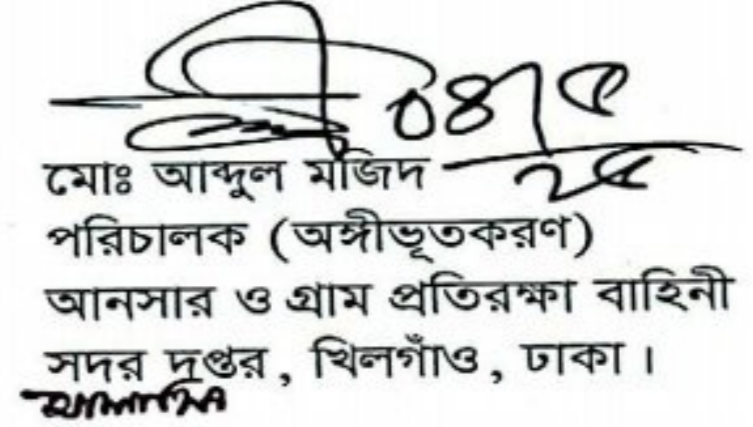 ০৪/৫
২৫
মোঃ আব্দুল মজিদ
পরিচালক (অঙ্গীভূতকরণ)
আনসার ও গ্রাম প্রতিরক্ষা বাহিনী
সদর দপ্তর, খিলগাঁও, ঢাকা।